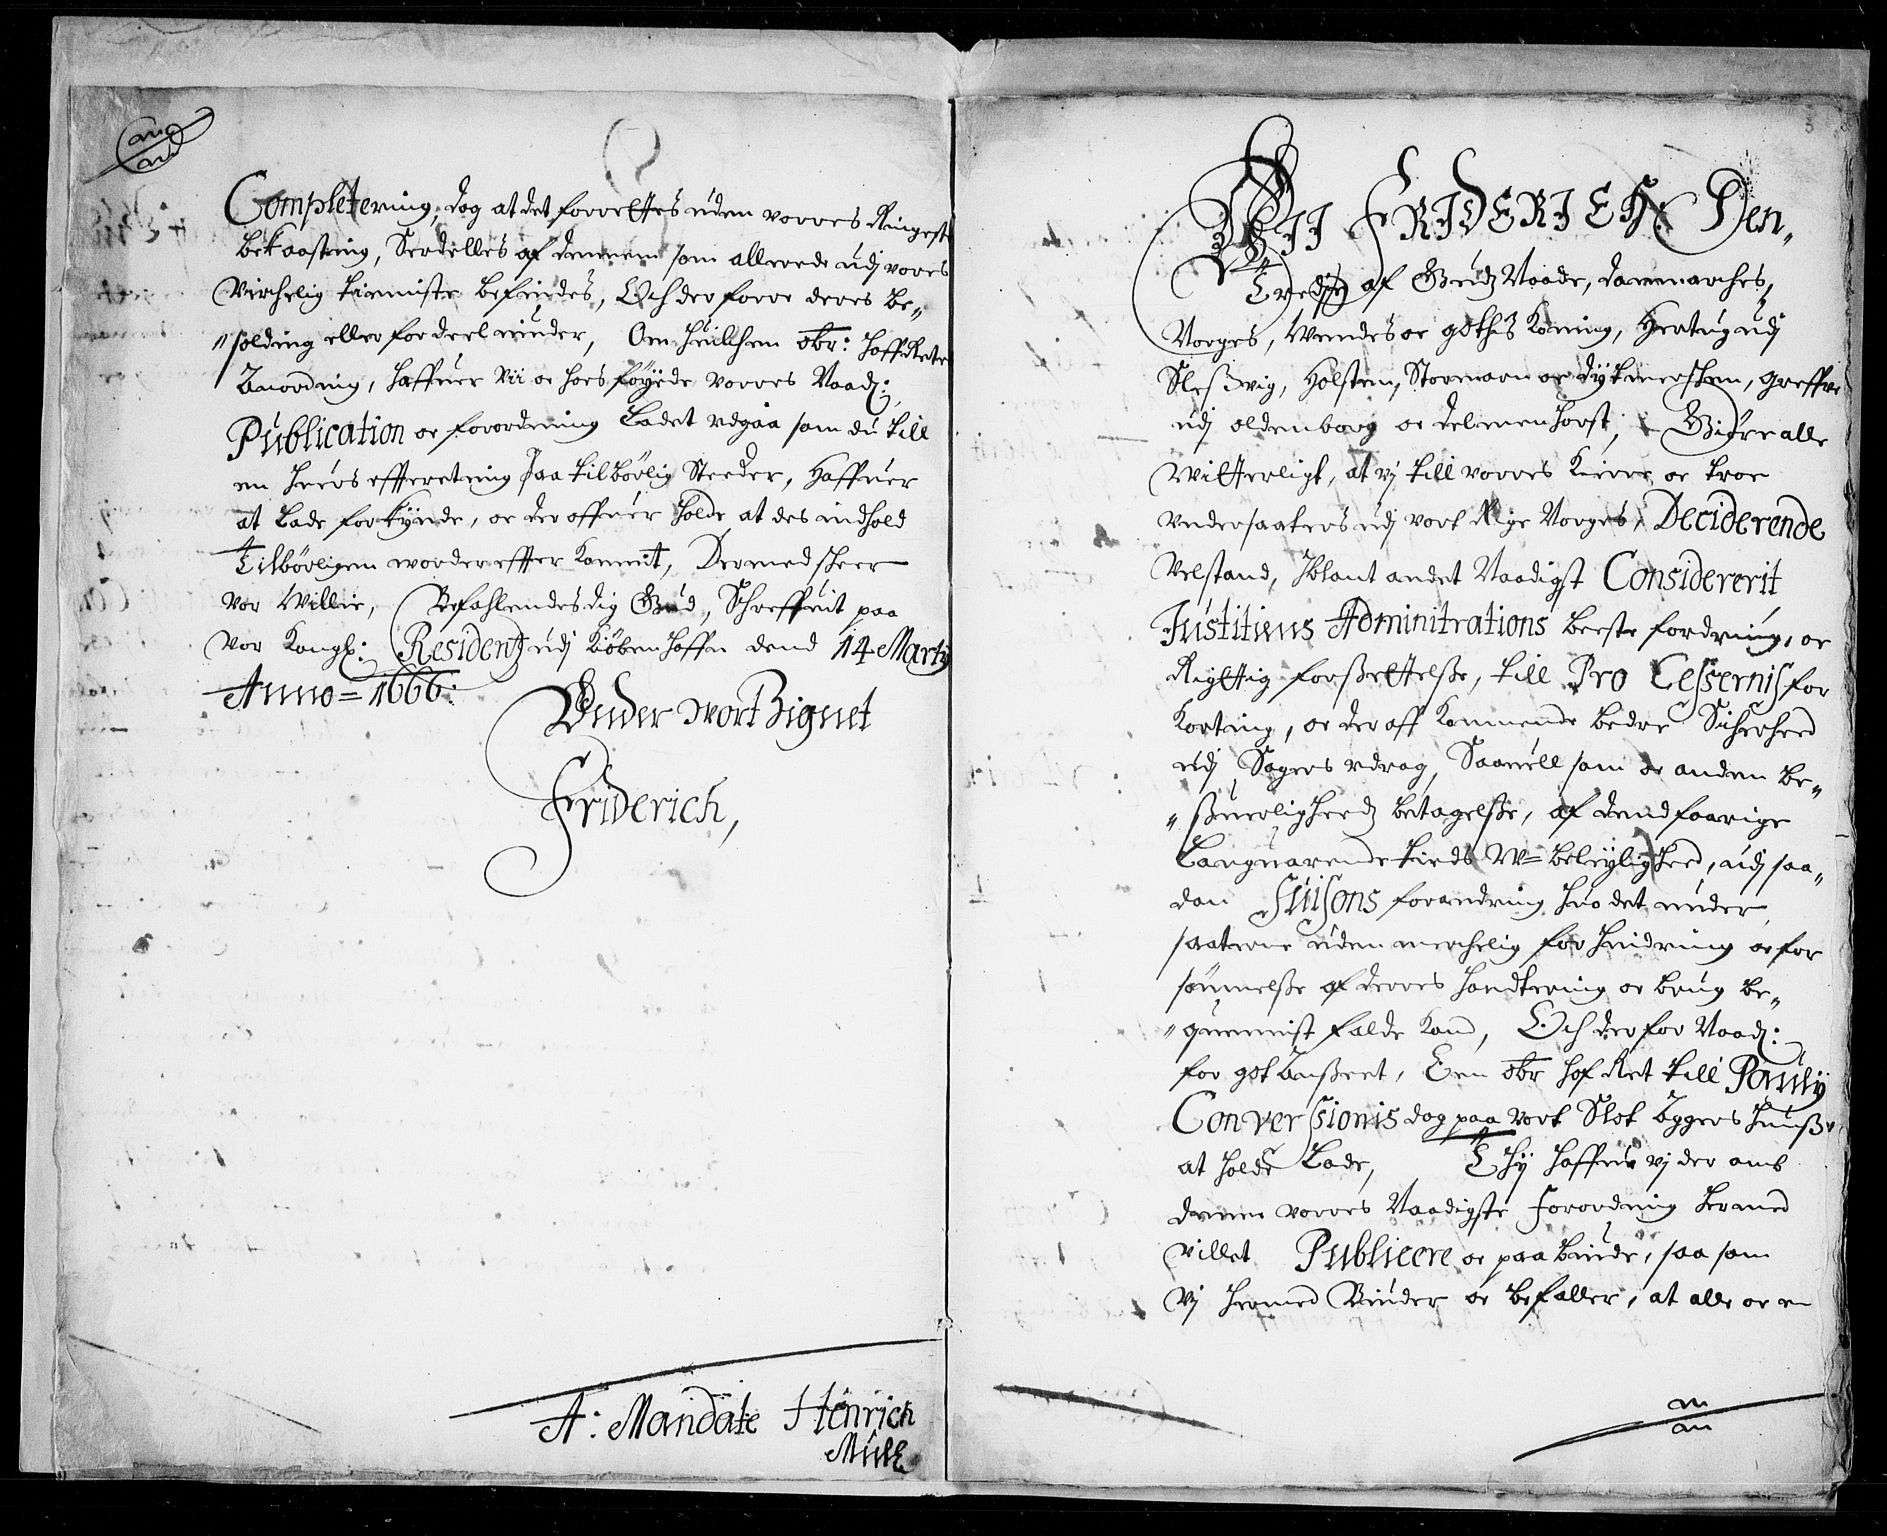 Completering, dog at det forrettes uden vorres Ringeste
bekaastning, Serdelles af dennem som allerede udj vores
Virchelig tienniste befindes, Och der forre deres be„
„solding eller fordeel niuder, Om huilchen obr: hoffRets
Anordning, haffuer Vii oc hos föyede vorres Naad:
Publication oc forordning Ladet udgaa som du till
en huers effterretning paa tilbörlig Steeder, Haffuer
at Lade forkynde, oc der offuer holde at des indhold
Tilbörligen worder effter kommit, Dermed skeer
vor Willie, Befahlendes dig Gud, Schreffuit paa
Vor Kongl: Residentz udj Kiöbenhaffn dend 14 Marty
Anno = 1666:
Under wort Zignet
Friderich,
A: Mandate Henrich
Müll
WII FRIDERICH: Den„
Tredie af Guds Naade, Danmarches,
Norges, Wendes oc Gothis Koning, Hertug udj
Sleßwig, Holsten, Stormarn oc Dytmersken, Greffve
udj Oldenborg oc Delmenhorst, Giörre alle
Witterligt, at vj till vorres Kierre oc troe
Undersaaters udj vort Rige Norges, Deciderende
Velstand, Iblant andet Naadigst Considererit
Justitiens Adminitrations beeste fordring, oc
Rigttig forßettelße, till Pro Cessernis for
Korting, oc der aff kommende bedre Sicherheed
udj Sagers udrag, Saauell som oc anden be„
„ßuerligheedz betagelße, af dend faarige
Langvarende tieds W= beleyligheed, udj saa„
dan Suisons forandring huo det under
saaterne uden merchelig forhindring oc for
sömmelße af derres handtering oc brug be„
„quemmist falde kand, Och derfor Naad:
for got Anßeet, Een obr hof Ret till Pauly
Conversionis dog paa vort Slot Aggers huuß
at holde Lade, Thy haffuer vj der omb
denne vorres Naadigste Forordning hermed
villet Publicere oc paabiude, saa som
Vj hermed Biuder oc befaller, at alle oc en